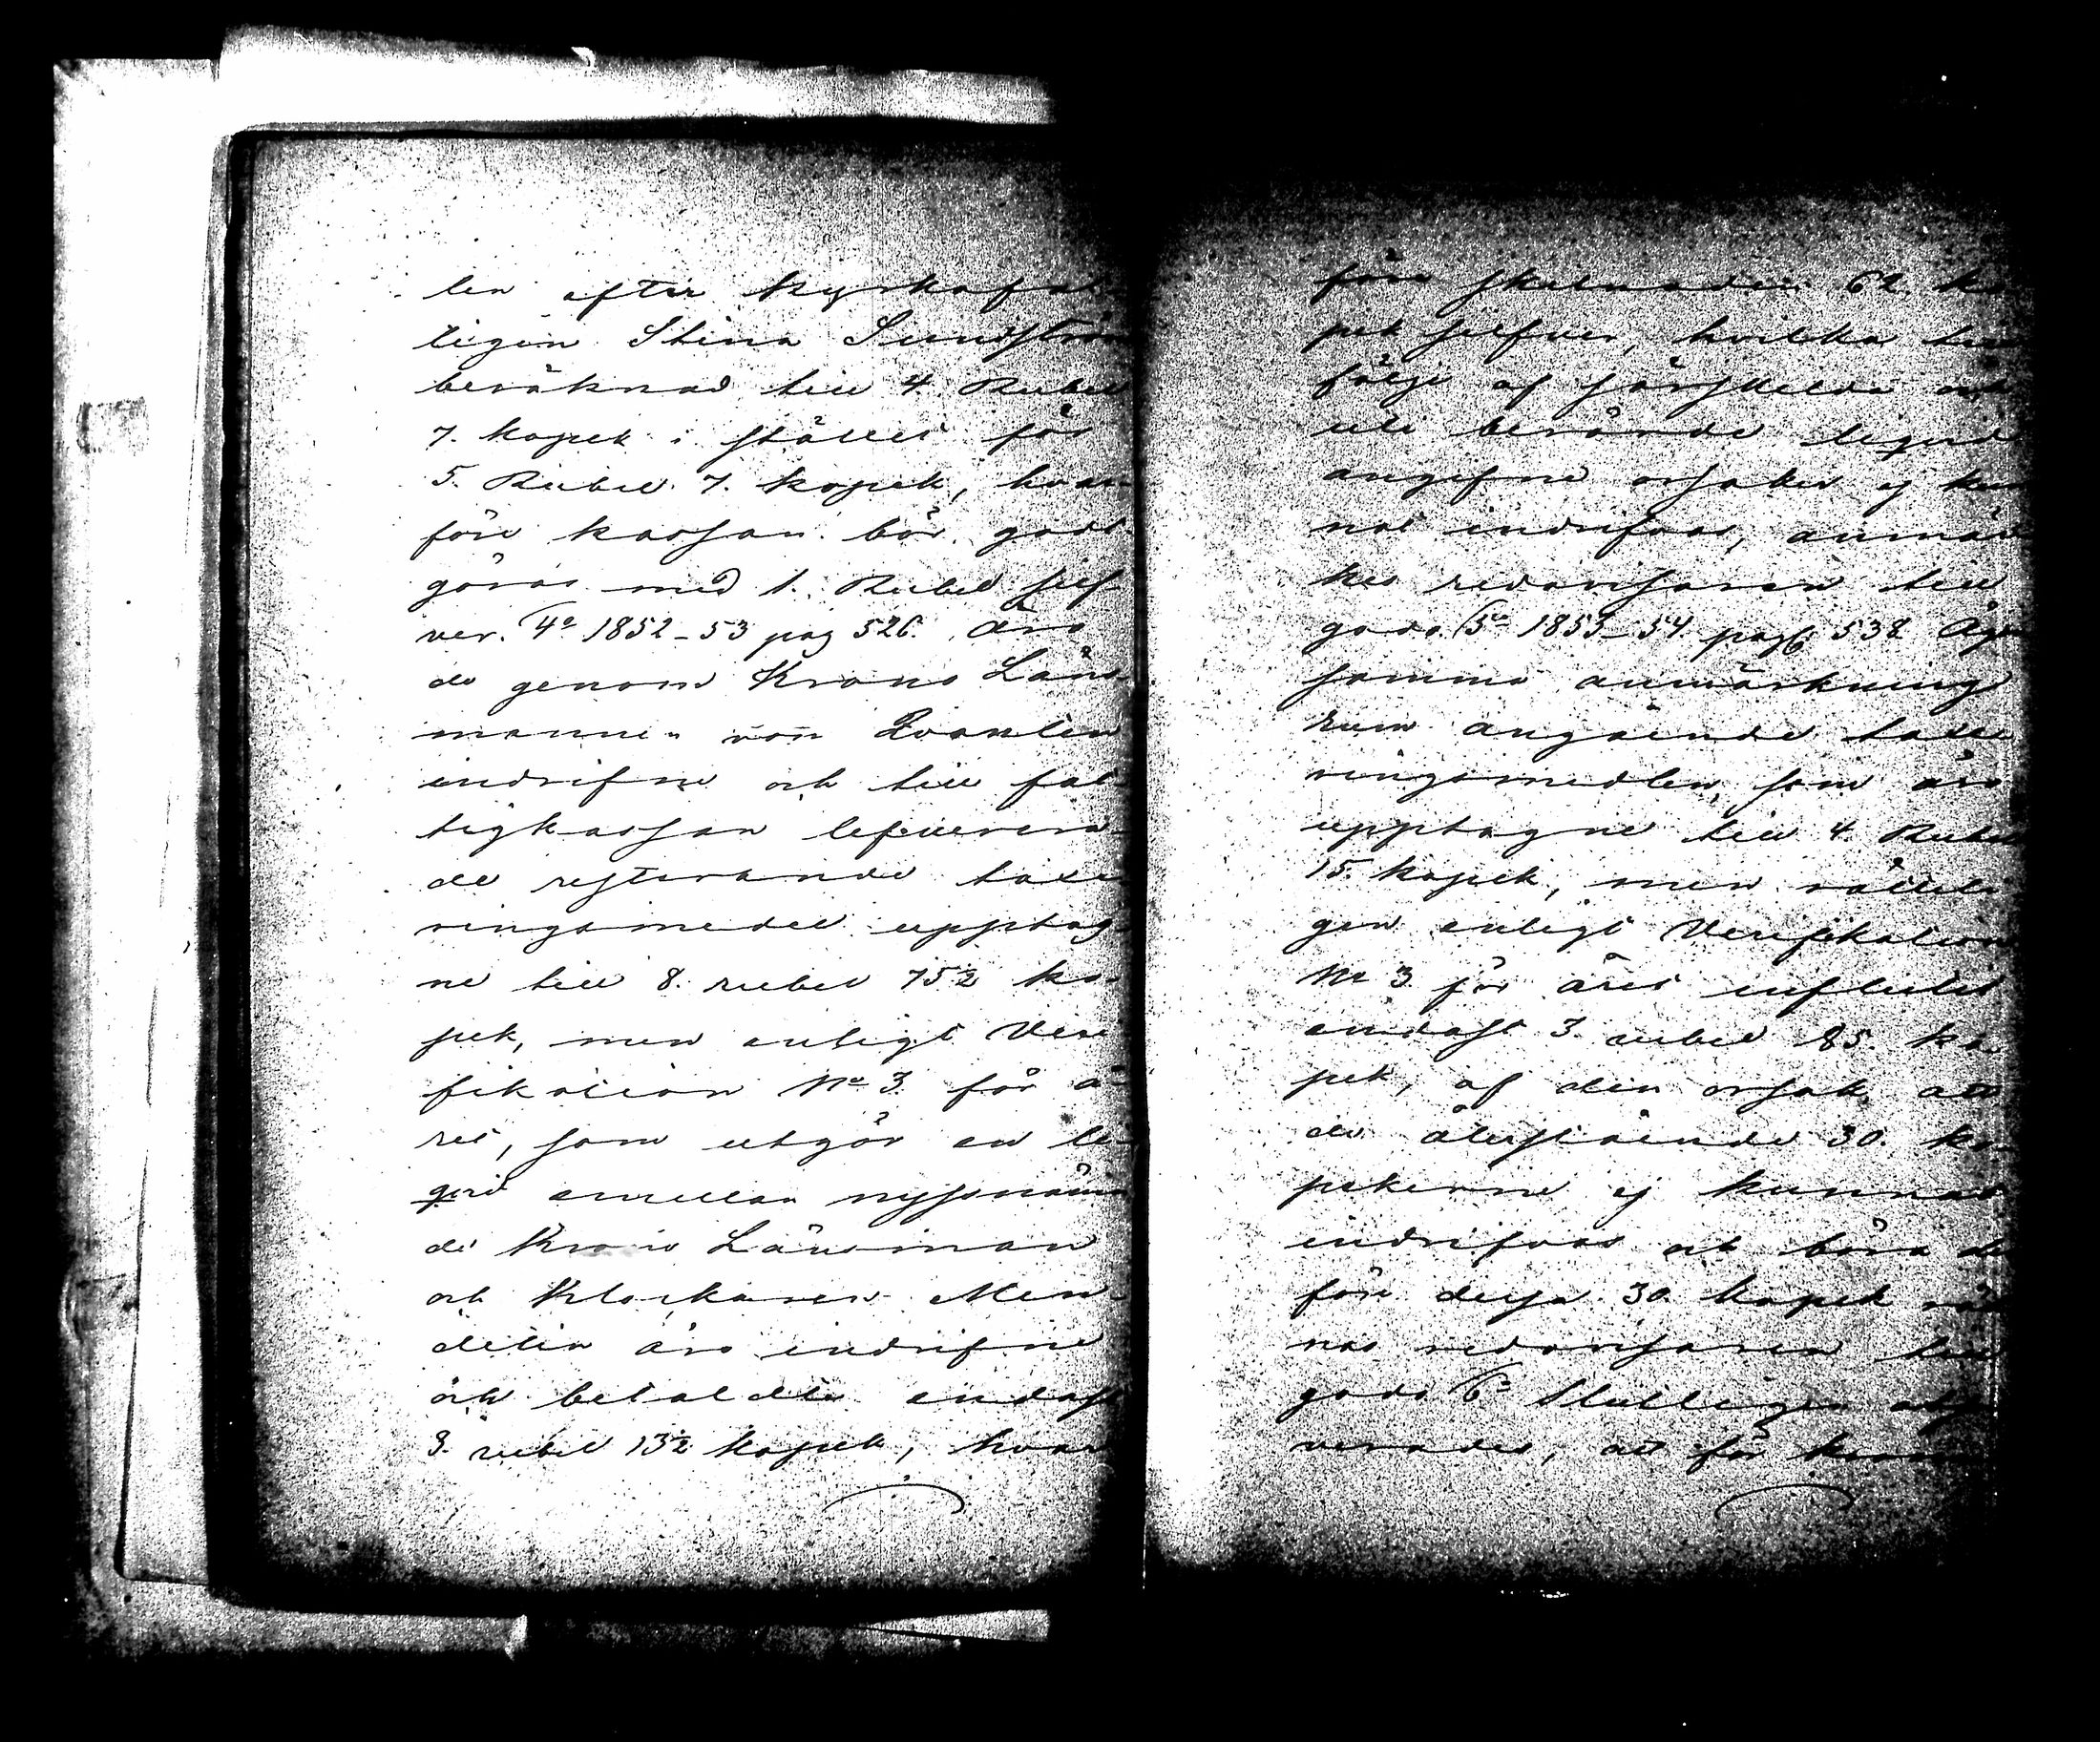 len efter Kyrkofat-
tigen Stina Sundström
beräknad till 4. Rubel
7. kopek i stället för
5. Rubel 7. kopek, hvar-
före kassan bör godt-
göras med 1. Rubel silf-
ver. 4o 1852-53 pag 526. Äro
de genom Krono Läns-
mannen von Qvanten
indrifne och till fat-
tigkassan lefverera-
de resterande taxe-
ringsmedel upptag-
ne till 8. rubel 75 2 ko-
pek, men enligt Veri-
fikation No 3. för å-
ret, som utgör en li-
qvid emellan nyssnämn
de Krono Länsman
och Klockaren Men-
delin äro indrifne
och betalde endast
8. rubel 13 2 kopek, hvar-
före skilnaden 62 ko-
pek silfver, hvilka till
följe af särskilde och
uti berörde liqvid
angifne orsaker ej kun
nat indrifvas, anmär
kes redovisaren till
godo. 5o 1853-54. pag. 538 Äger
samma anmärkning
rum angående taxe
ringsmedlen, som äro
upptagne till 4. Rubel
15. kopek, men rätteli-
gen enligt Verifikation
No 3 för året influtit
endast 3 rubel 85. ko
pek, af den orsak, att
de återstående 30. ko-
pekerne ej kunnat
indrifvas och böra der
före dessa 30. kopek räk
nas redovisaren till
godo 6o Slutligen
att för